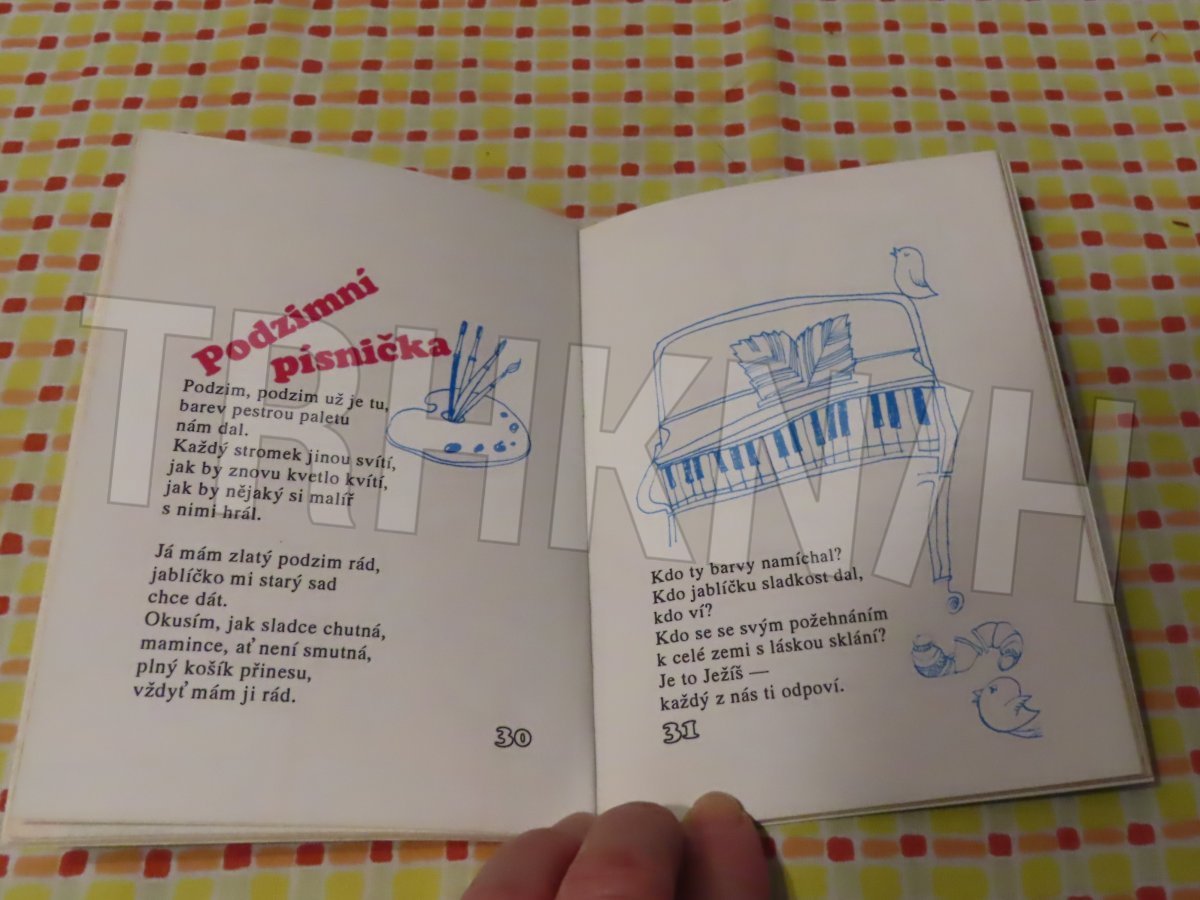 Podzimní
písnička
Podzim, podzim už je tu,
barev pestrou paletu
nám dal.
Každý stromek jinou svítí,
jak by znovu kvetlo kvítí,
jak by nějaký si malíř
s nimi hrál.
Já mám zlatý podzim rád,
jablíčko mi starý sad
chce dát.
Okusím, jak sladce chutná,
mamince, ať není smutná,
plný košík přinesu,
vždyť mám ji rád.
30
Kdo ty barvy namíchal?
Kdo jablíčku sladkost dal,
kdo ví?
Kdo se se svým požehnáním
k celé zemi s láskou sklání?
Je to Ježíš —
každý z nás ti odpoví.
31
TRHKNIH